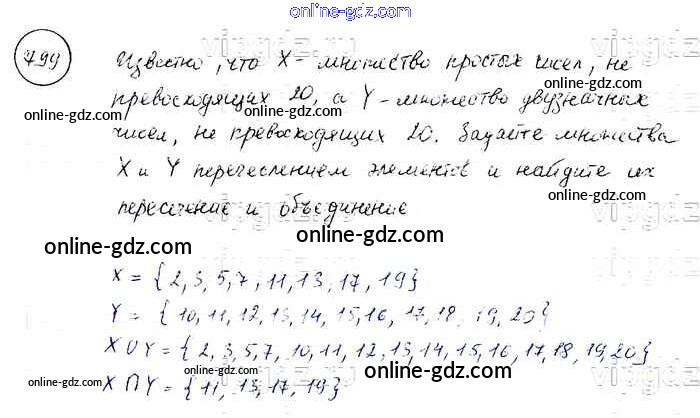 online-gdz.com
799
online-gdz.com
Известно, что X - множество простых чисел, не
превосходящих 20, а Y - множество двузначных
чисел, не превосходящих 20. Задайте множества
X и Y перечеслением элементов и найдите их
пересечение и объединение
online-gdz.com
online-gdz.com
X = {2, 3, 5, 7, 11, 13, 17, 19}
Y = {10, 11, 12, 13, 14, 15, 16, 17, 18, 19, 20}
X ∪ Y = {2, 3, 5, 7, 10, 11, 12, 13, 14, 15, 16, 17, 18, 19, 20}
X ∩ Y = {11, 13, 17, 19}
online-gdz.com
online-gdz.com
online-gdz.com
online-gdz.com
online-gdz.com